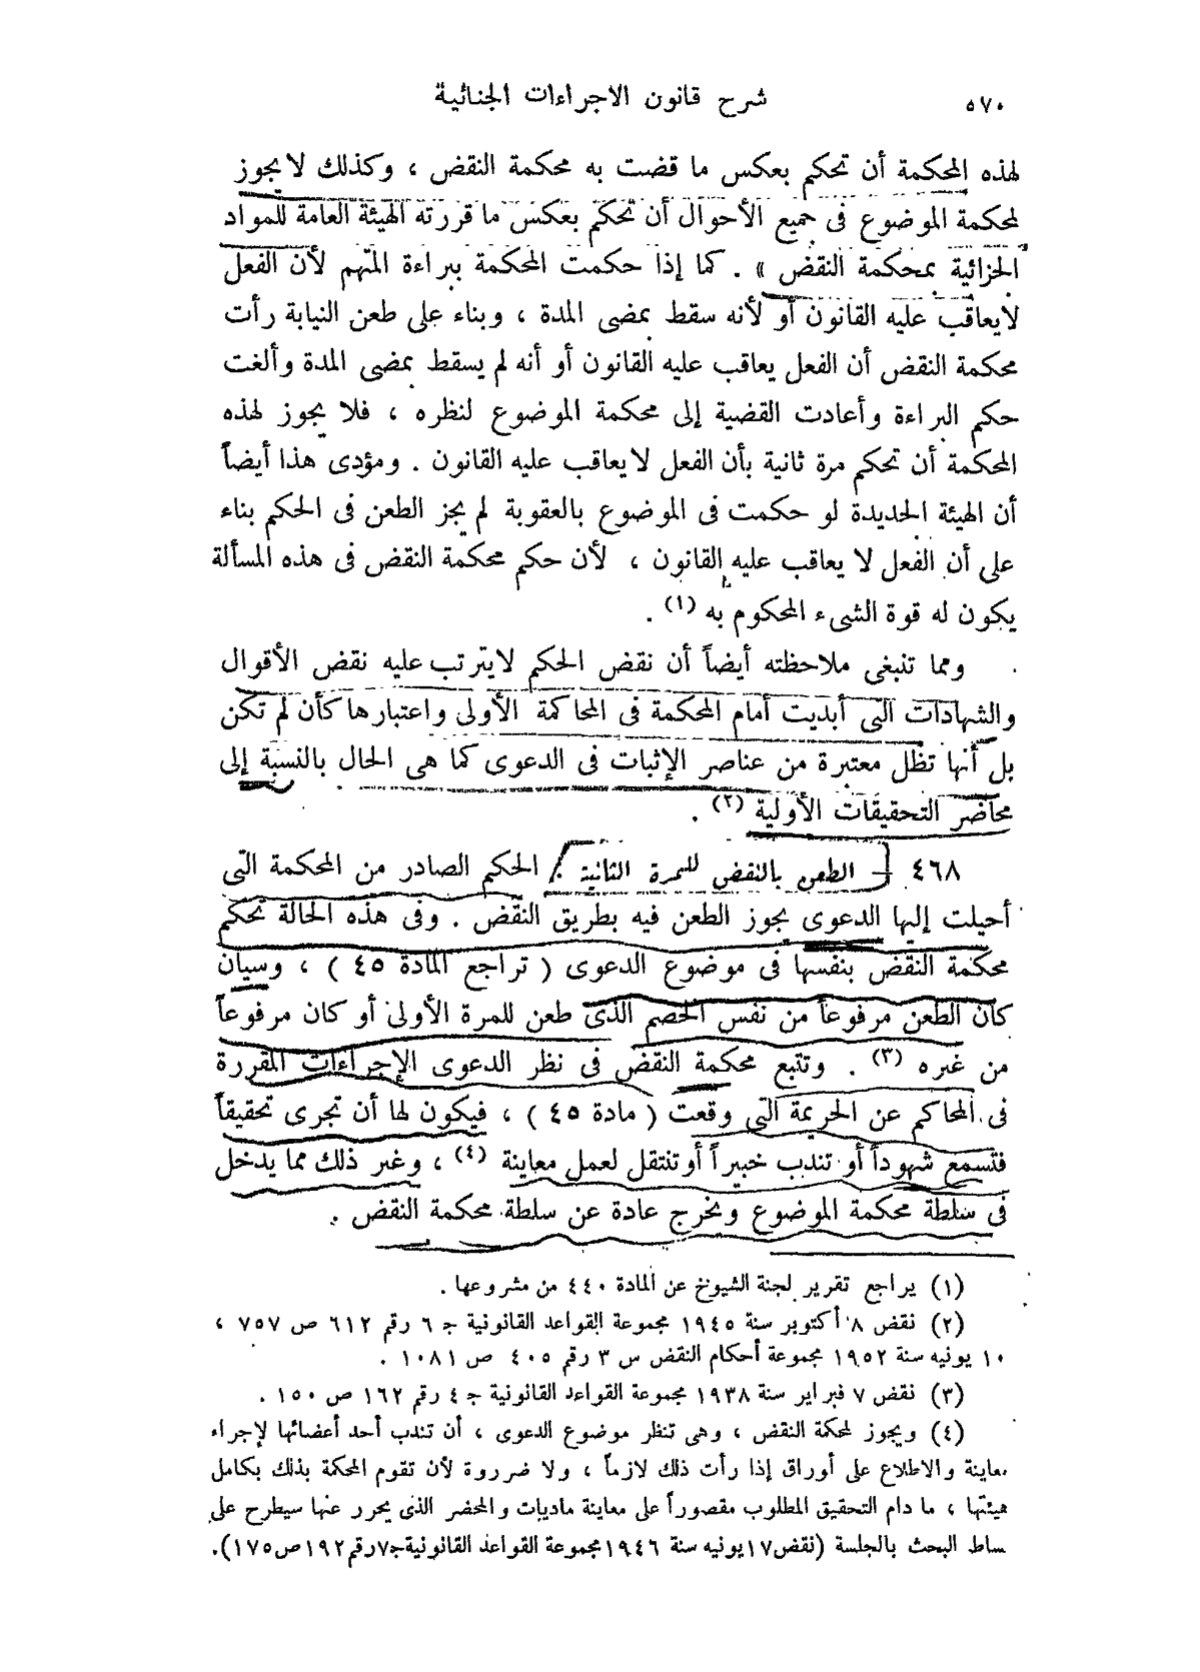 ٥٧٠
شرح قانون الاجراءات الجنائية
لهذه المحكمة أن تحكم بعكس ما قضت به محكمة النقض ، وكذلك لا يجوز
لمحكمة الموضوع فى جميع الأحوال أن تحكم بعكس ما قررته الهيئة العامة للمواد
الجزائية بمحكمة النقض » . كما إذا حكمت المحكمة ببراءة المتهم لأن الفعل
لايعاقب عليه القانون أو لأنه سقط بمضى المدة ، وبناء على طعن النيابة رأت
محكمة النقض أن الفعل يعاقب عليه القانون أو أنه لم يسقط بمضى المدة وألغت
حكم البراءة وأعادت القضية إلى محكمة الموضوع لنظره ، فلا يجوز لهذه
المحكمة أن تحكم مرة ثانية بأن الفعل لا يعاقب عليه القانون . ومؤدى هذا أيضاً
أن الهيئة الجديدة لو حكمت فى الموضوع بالعقوبة لم يجز الطعن فى الحكم بناء
على أن الفعل لا يعاقب عليه القانون ، لأن حكم محكمة النقض فى هذه المسألة
يكون له قوة الشىء المحكوم به (١) .
ومما تنبغى ملاحظته أيضاً أن نقض الحكم لايترتب عليه نقض الأقوال
والشهادات التى أبديت أمام المحكمة فى المحاكمة الأولى واعتبارها كأن لم تكن
بل أنها تظل معتبرة من عناصر الإثبات فى الدعوى كما هى الحال بالنسبة إلى
محاضر التحقيقات الأولية (٢) .
٤٦٨ – الطعن بالنقض للمرة الثانية : الحكم الصادر من المحكمة التى
أحيلت إليها الدعوى يجوز الطعن فيه بطريق النقض . وفى هذه الحالة تحكم
محكمة النقض بنفسها فى موضوع الدعوى ( تراجع المادة ٤٥ ) ، وسيان
كان الطعن مرفوعاً من نفس الخصم الذى طعن للمرة الأولى أو كان مرفوعاً
من غيره (٣) . وتتبع محكمة النقض فى نظر الدعوى الإجراءات المقررة
فى المحاكم عن الجريمة التى وقعت ( مادة ٤٥ ) ، فيكون لها أن تجرى تحقيقاً
فتسمع شهوداً أو تندب خبيراً أو تنتقل لعمل معاينة (٤) ، وغير ذلك مما يدخل
فى سلطة محكمة الموضوع ويخرج عادة عن سلطة محكمة النقض .
(١) يراجع تقرير لجنة الشيوخ عن المادة ٤٤٠ من مشروعها .
(٢) نقض ٨ أكتوبر سنة ١٩٤٥ مجموعة القواعد القانونية جـ ٦ رقم ٦١٢ ص ٧٥٧ ،
١٠ يونيه سنة ١٩٥٢ مجموعة أحكام النقض س ٣ رقم ٤٠٥ ص ١٠٨١ .
(٣) نقض ٧ فبراير سنة ١٩٣٨ مجموعة القواعد القانونية جـ ٤ رقم ١٦٢ ص ١٥٠ .
(٤) ويجوز لمحكمة النقض ، وهى تنظر موضوع الدعوى ، أن تندب أحد أعضائها لإجراء
معاينة والاطلاع على أوراق إذا رأت ذلك لازماً ، ولا ضرورة لأن تقوم المحكمة بذلك بكامل
هيئتها ، ما دام التحقيق المطلوب مقصوراً على معاينة ماديات والمحضر الذى يحرر عنها سيطرح على
بساط البحث بالجلسة (نقض ١٧ يونيه سنة ١٩٤٦ مجموعة القواعد القانونية جـ ٧ رقم ١٩٢ ص ١٧٥).